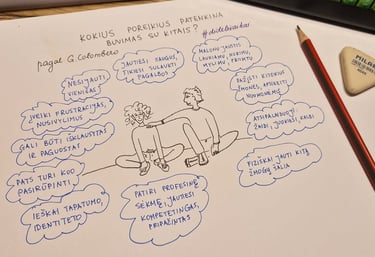 KOKIUS POREIKIUS PATENKINA
BUVIMAS SU KITAIS?
pagal G. Colombero
NESIJAUTI
VIENIŠAS
JAUTIESI SAUGUS,
TIKIESI SULAUKTI
PAGALBOS
MALONU JAUSTIS
LAUKIAMU, NORIMU,
MYLIMU, PRIIMTU
ĮVEIKI FRUSTRACIJAS,
NUSIVYLIMUS
PAŽĮSTI KITOKIUS
ŽMONES, APSIKEITI
NUOMONĖMIS
GALI BŪTI IŠKLAUSYTAS
IR PAGUOSTAS
ATSIPALAIDUOJI,
ŽAIDI, JUOKIESI, KALBI
PATS TURI KUO
PASIRŪPINTI
FIZIŠKAI JAUTI KITĄ
ŽMOGŲ ŠALIA
IEŠKAI TAPATUMO,
IDENTITETO
PATIRI PROFESINĘ
SĖKMĘ, JAUTIESI
KOMPETENTINGAS,
PRIPAŽINTAS
MILAN